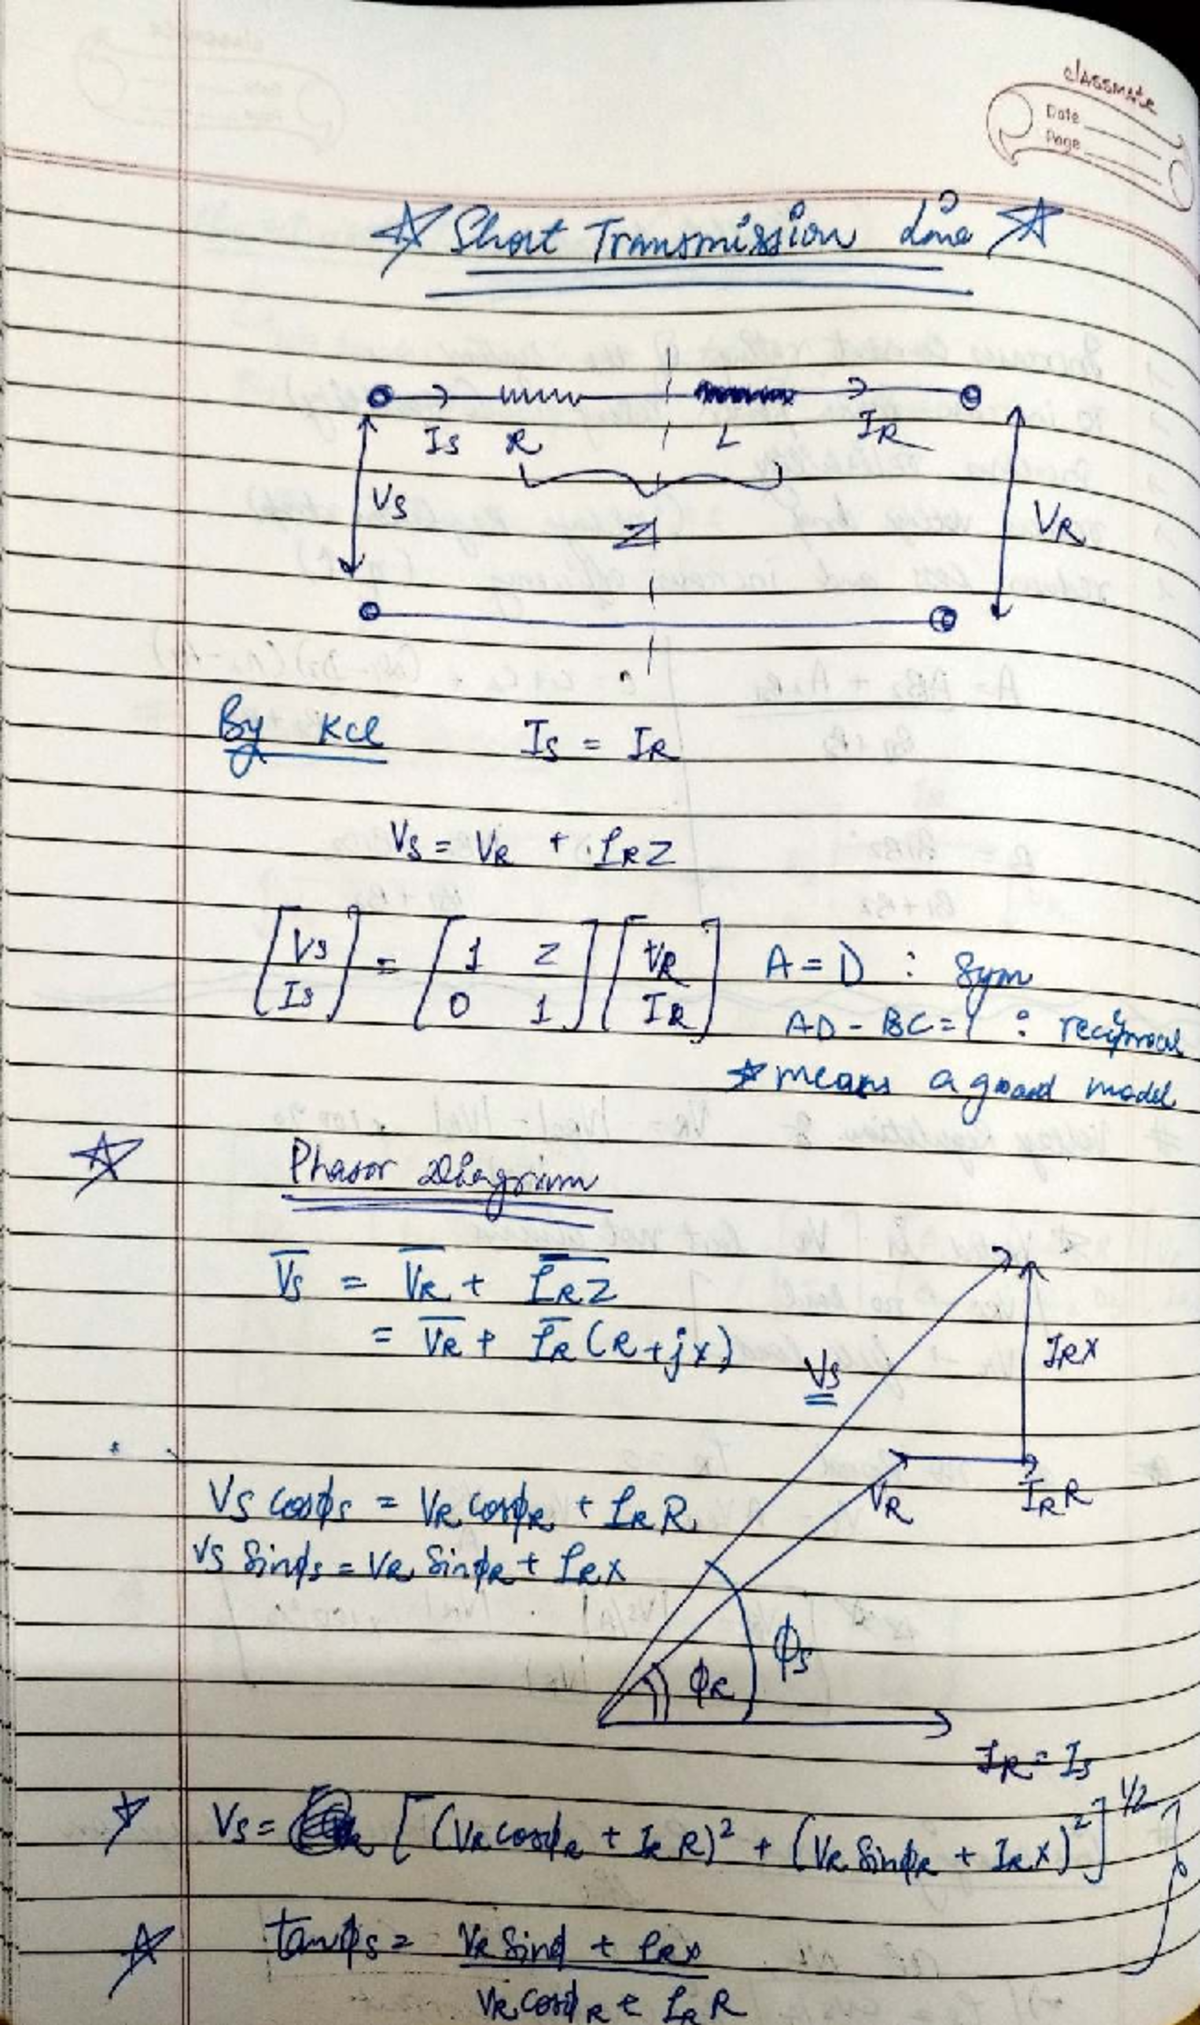 classmate
Date
Page
☆ Short Transmission Line ☆
Is R L IR
Vs
Z
VR
By KCL Is = IR
Vs = VR + IRZ
[Vs Is] = [1 Z 0 1] [VR IR] A = D : Sym
AD - BC = 1 : reciprocal
☆ means a good model
☆ Phasor Diagram
V̅s = V̅R + I̅R̅Z̅
= V̅R + I̅R (R + jx)
Vs
IRX
Vs cosϕs = VR cosϕR + IR R
VR
IR R
Vs Sinϕs = VR SinϕR + IRX
ϕs
ϕR
IR = Is
☆ Vs = [(VR cosϕR + IR R)² + (VR SinϕR + IR X)²]^1/2
☆ tanϕs = VR Sinϕ + IRX
VR cosϕR + IR R